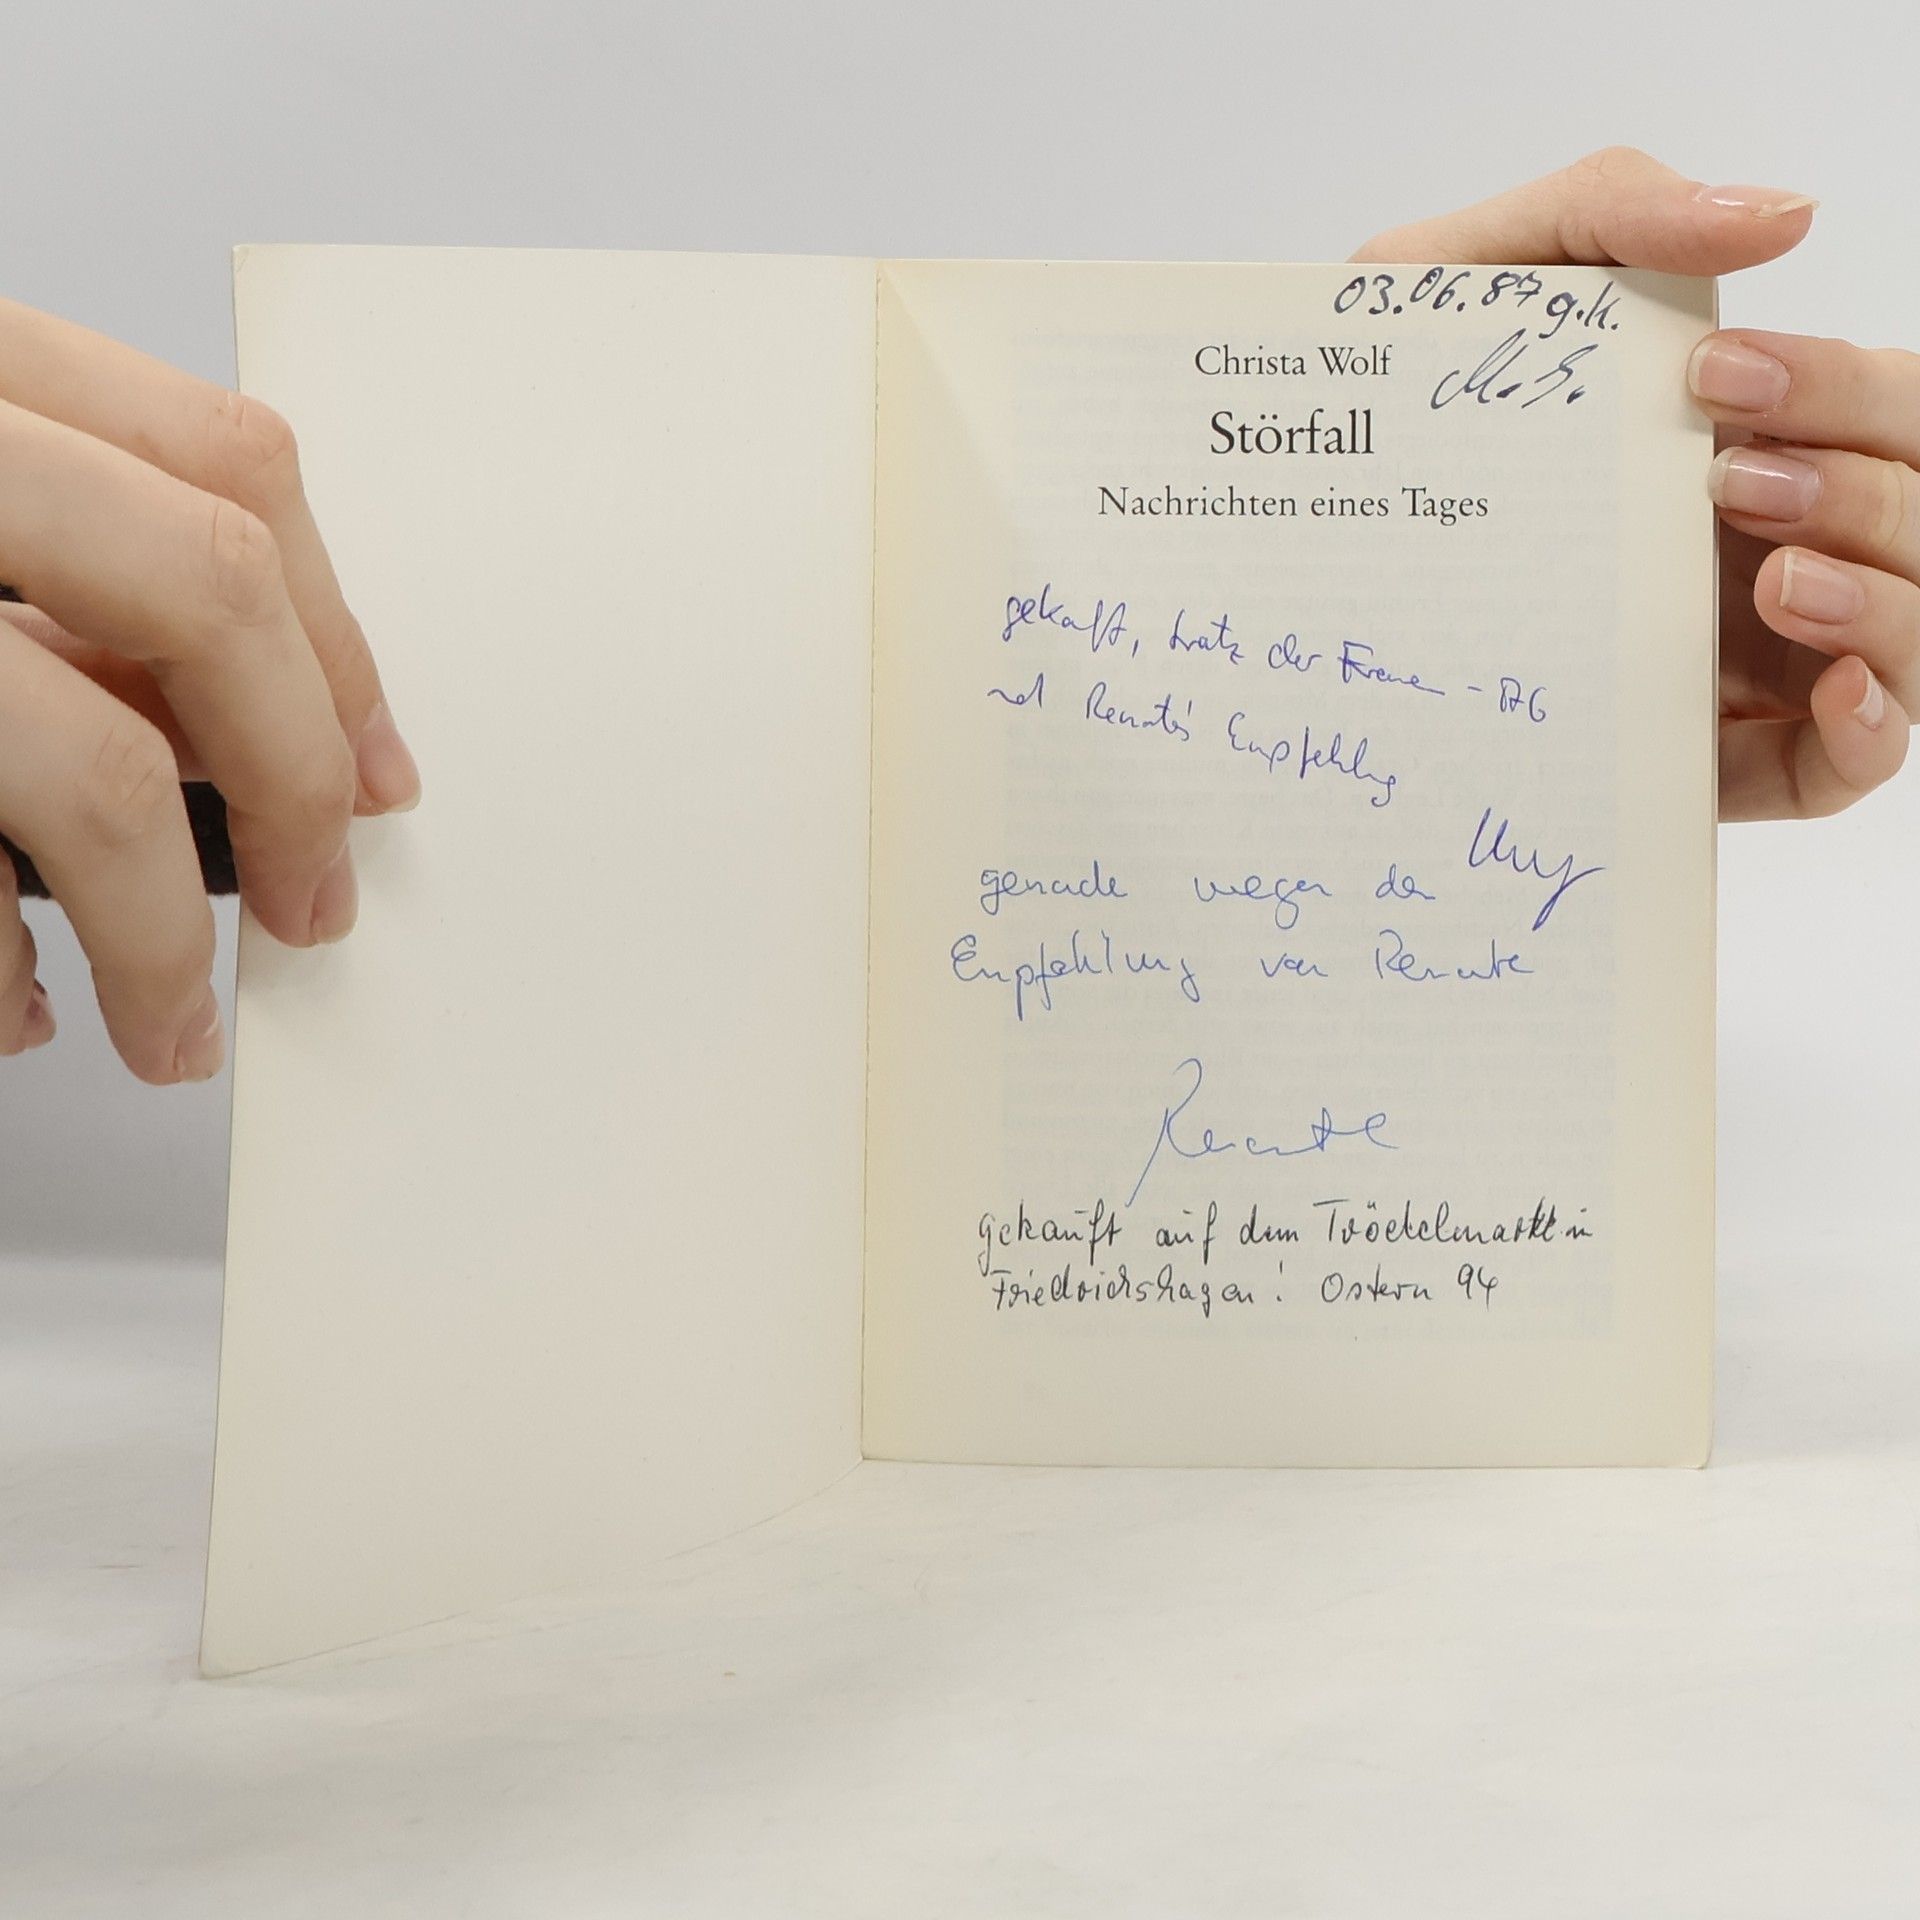 03.06.87 g.k.
Christa Wolf
M. S.
Störfall
Nachrichten eines Tages
gekauft, trotz der Frauen-AG
und Renate's Empfehlung
gerade wegen der
Empfehlung von Renate
Renate
gekauft auf dem Trödelmarkt in
Friedrichshagen! Ostern 94